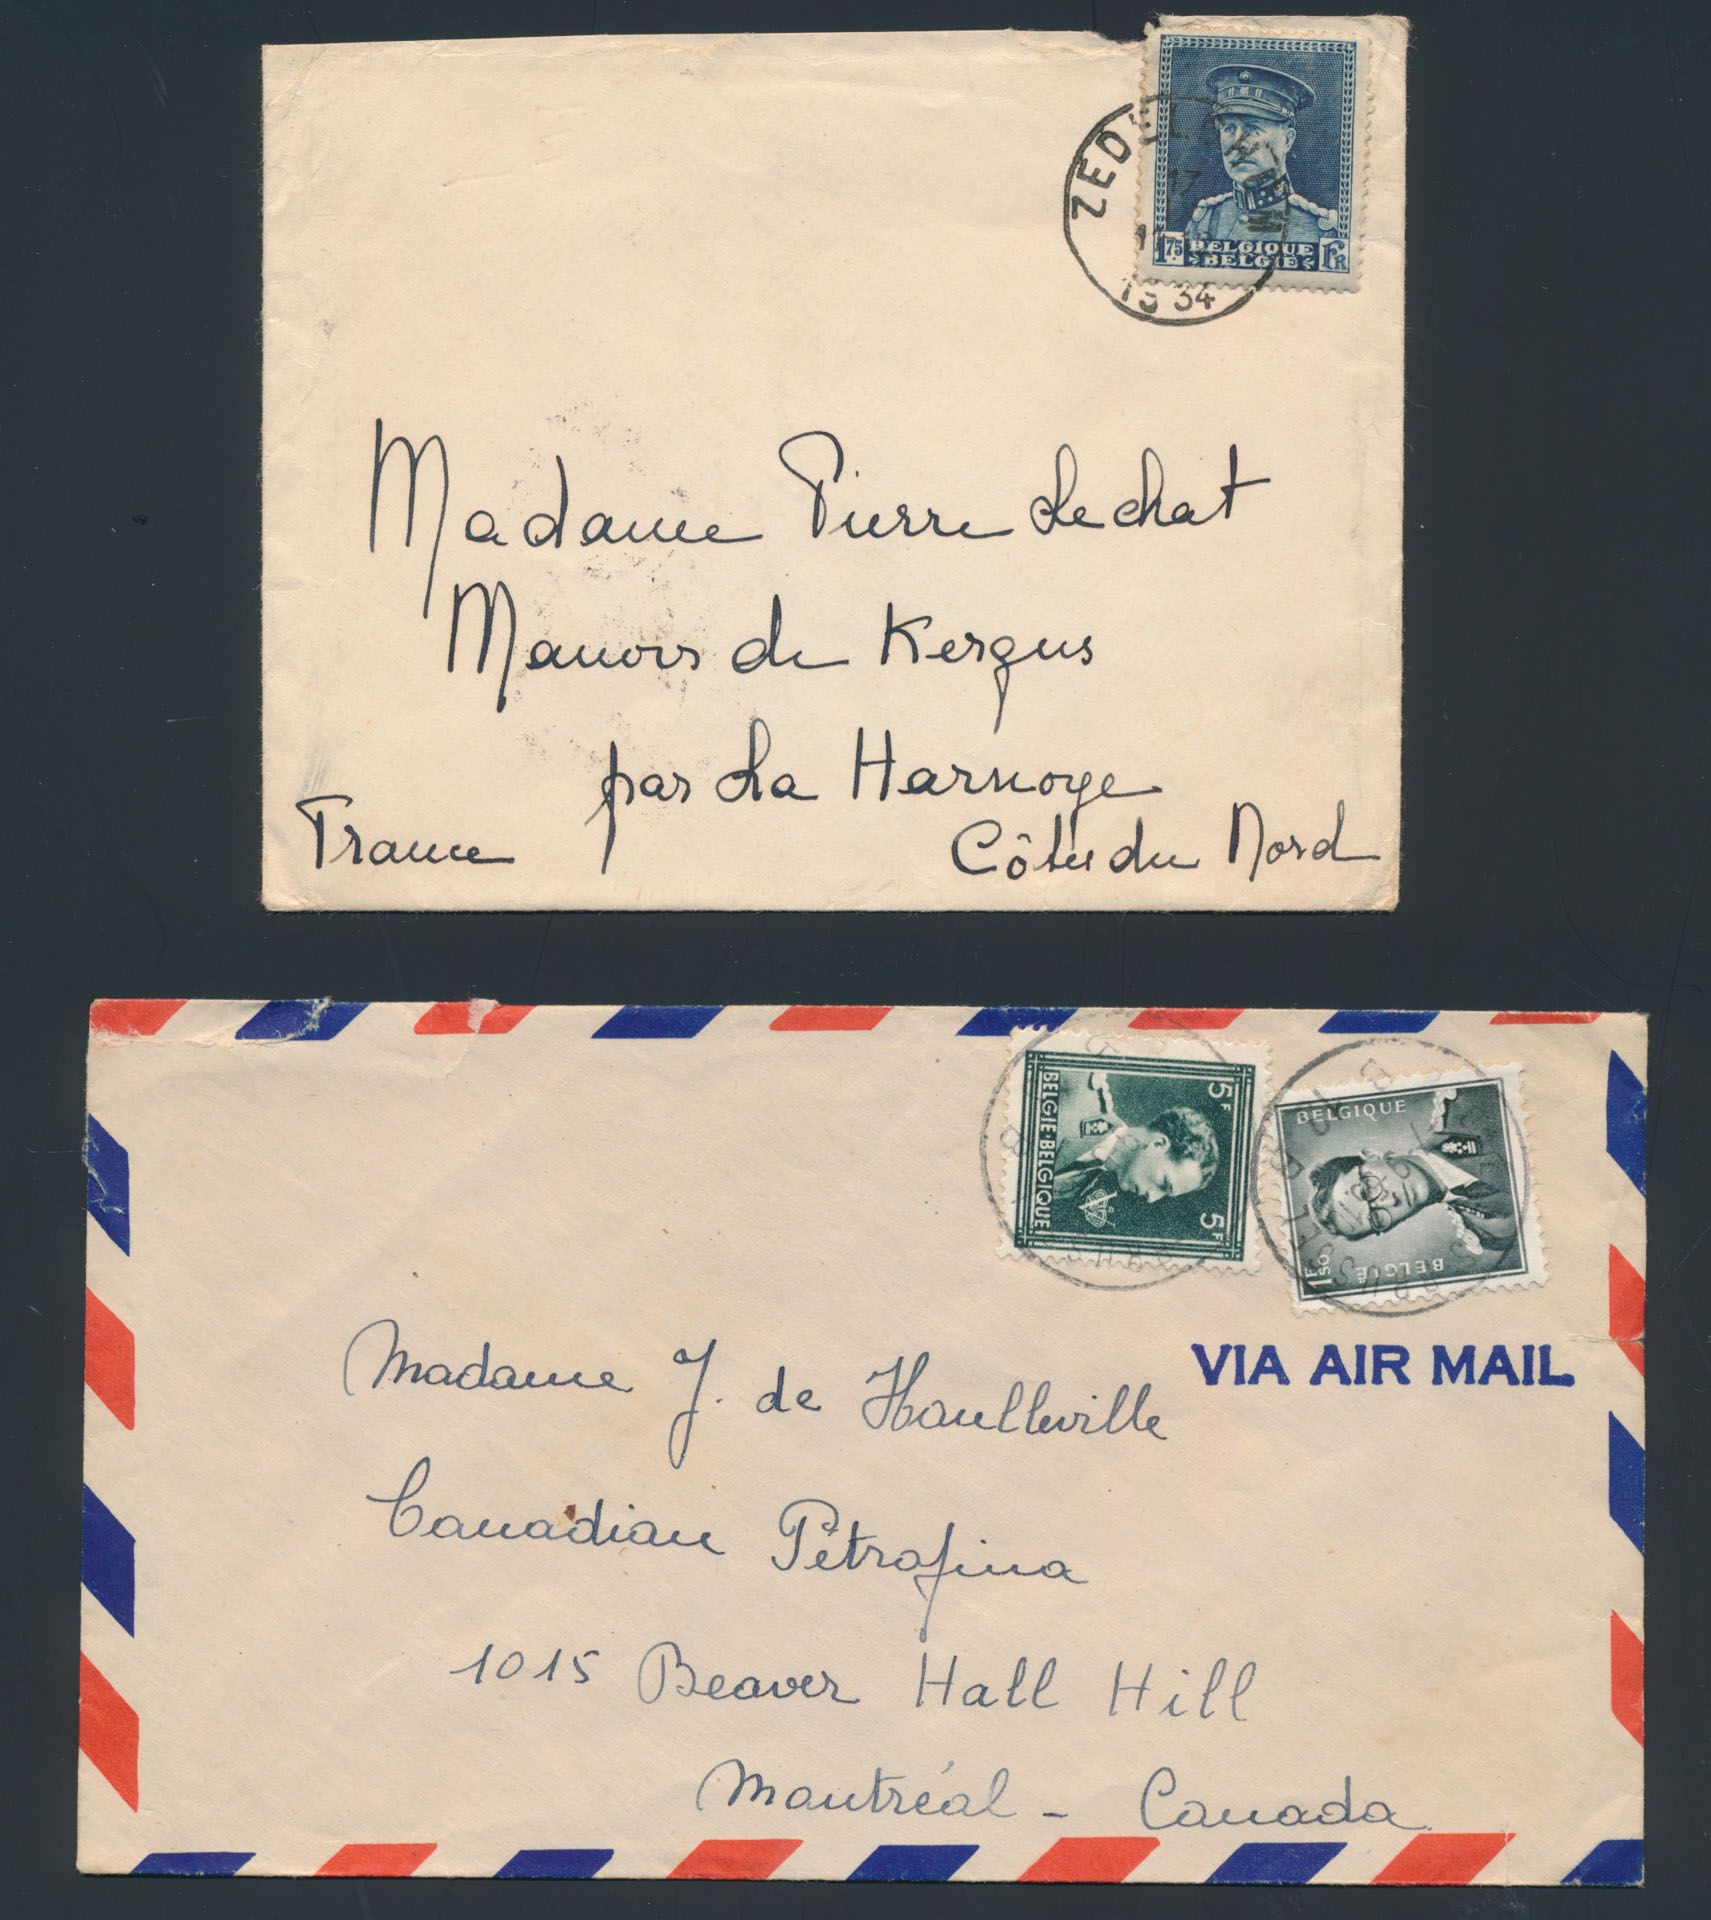 ZEDELGEM
17
1934
1.75 BELGIQUE FR
BELGIE
Madame Pierre Lechat
Manoir de Kergus
par La Harmoye
France Côtes du Nord
5F BELGIE·BELGIQUE 5F
BELGIQUE
BELGIË
1F50
VIA AIR MAIL
Madame J. de Haulleville
Canadian Pétrofina
1015 Beaver Hall Hill
Montréal - Canada